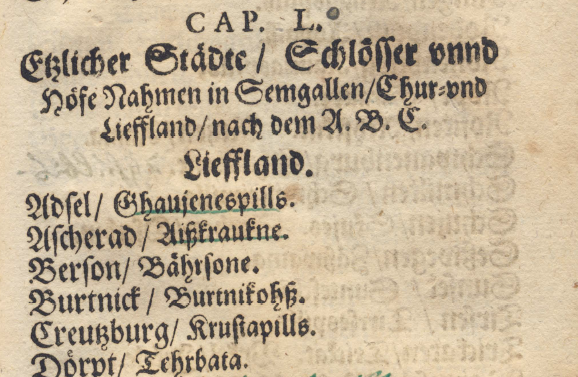 CAP. L.
Etzlicher Städte / Schlösser vnnd
Höfe Nahmen in Semgallen/Chur-vnd
Lieffland/ nach dem A. B. C.
Lieffland.
Adsel/ Ghaujenespills.
Ascherad/ Aißkraukne.
Berson/ Bährsone.
Burtnick / Burtnikohß.
Creutzburg/ Krustapills.
Dörpt/ Tehrbata.